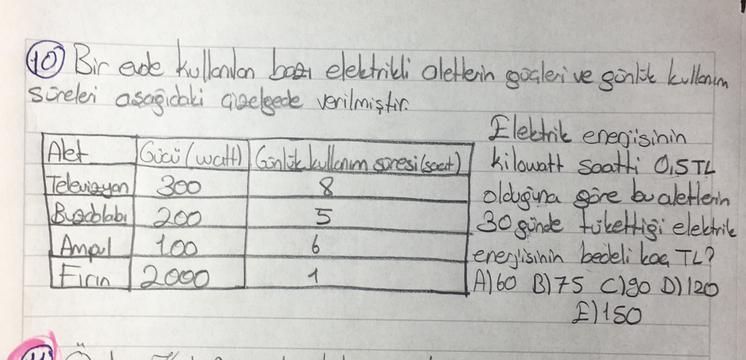 10) Bir evde kullanılan bazı elektrikli aletlerin güçleri ve günlük kullanım
süreleri aşağıdaki çizelgede verilmiştir.
Alet Gücü (watt) Günlük kullanım süresi (saat)
Televizyon 300 8
Buzdolabı 200 5
Ampul 100 6
Fırın 2000 1
Elektrik enerjisinin
kilowatt saatti 0,5 TL
olduğuna göre bu aletlerin
30 günde tükettiği elektrik
enerjisinin bedeli kaç TL?
A) 60 B) 75 C) 90 D) 120
E) 150